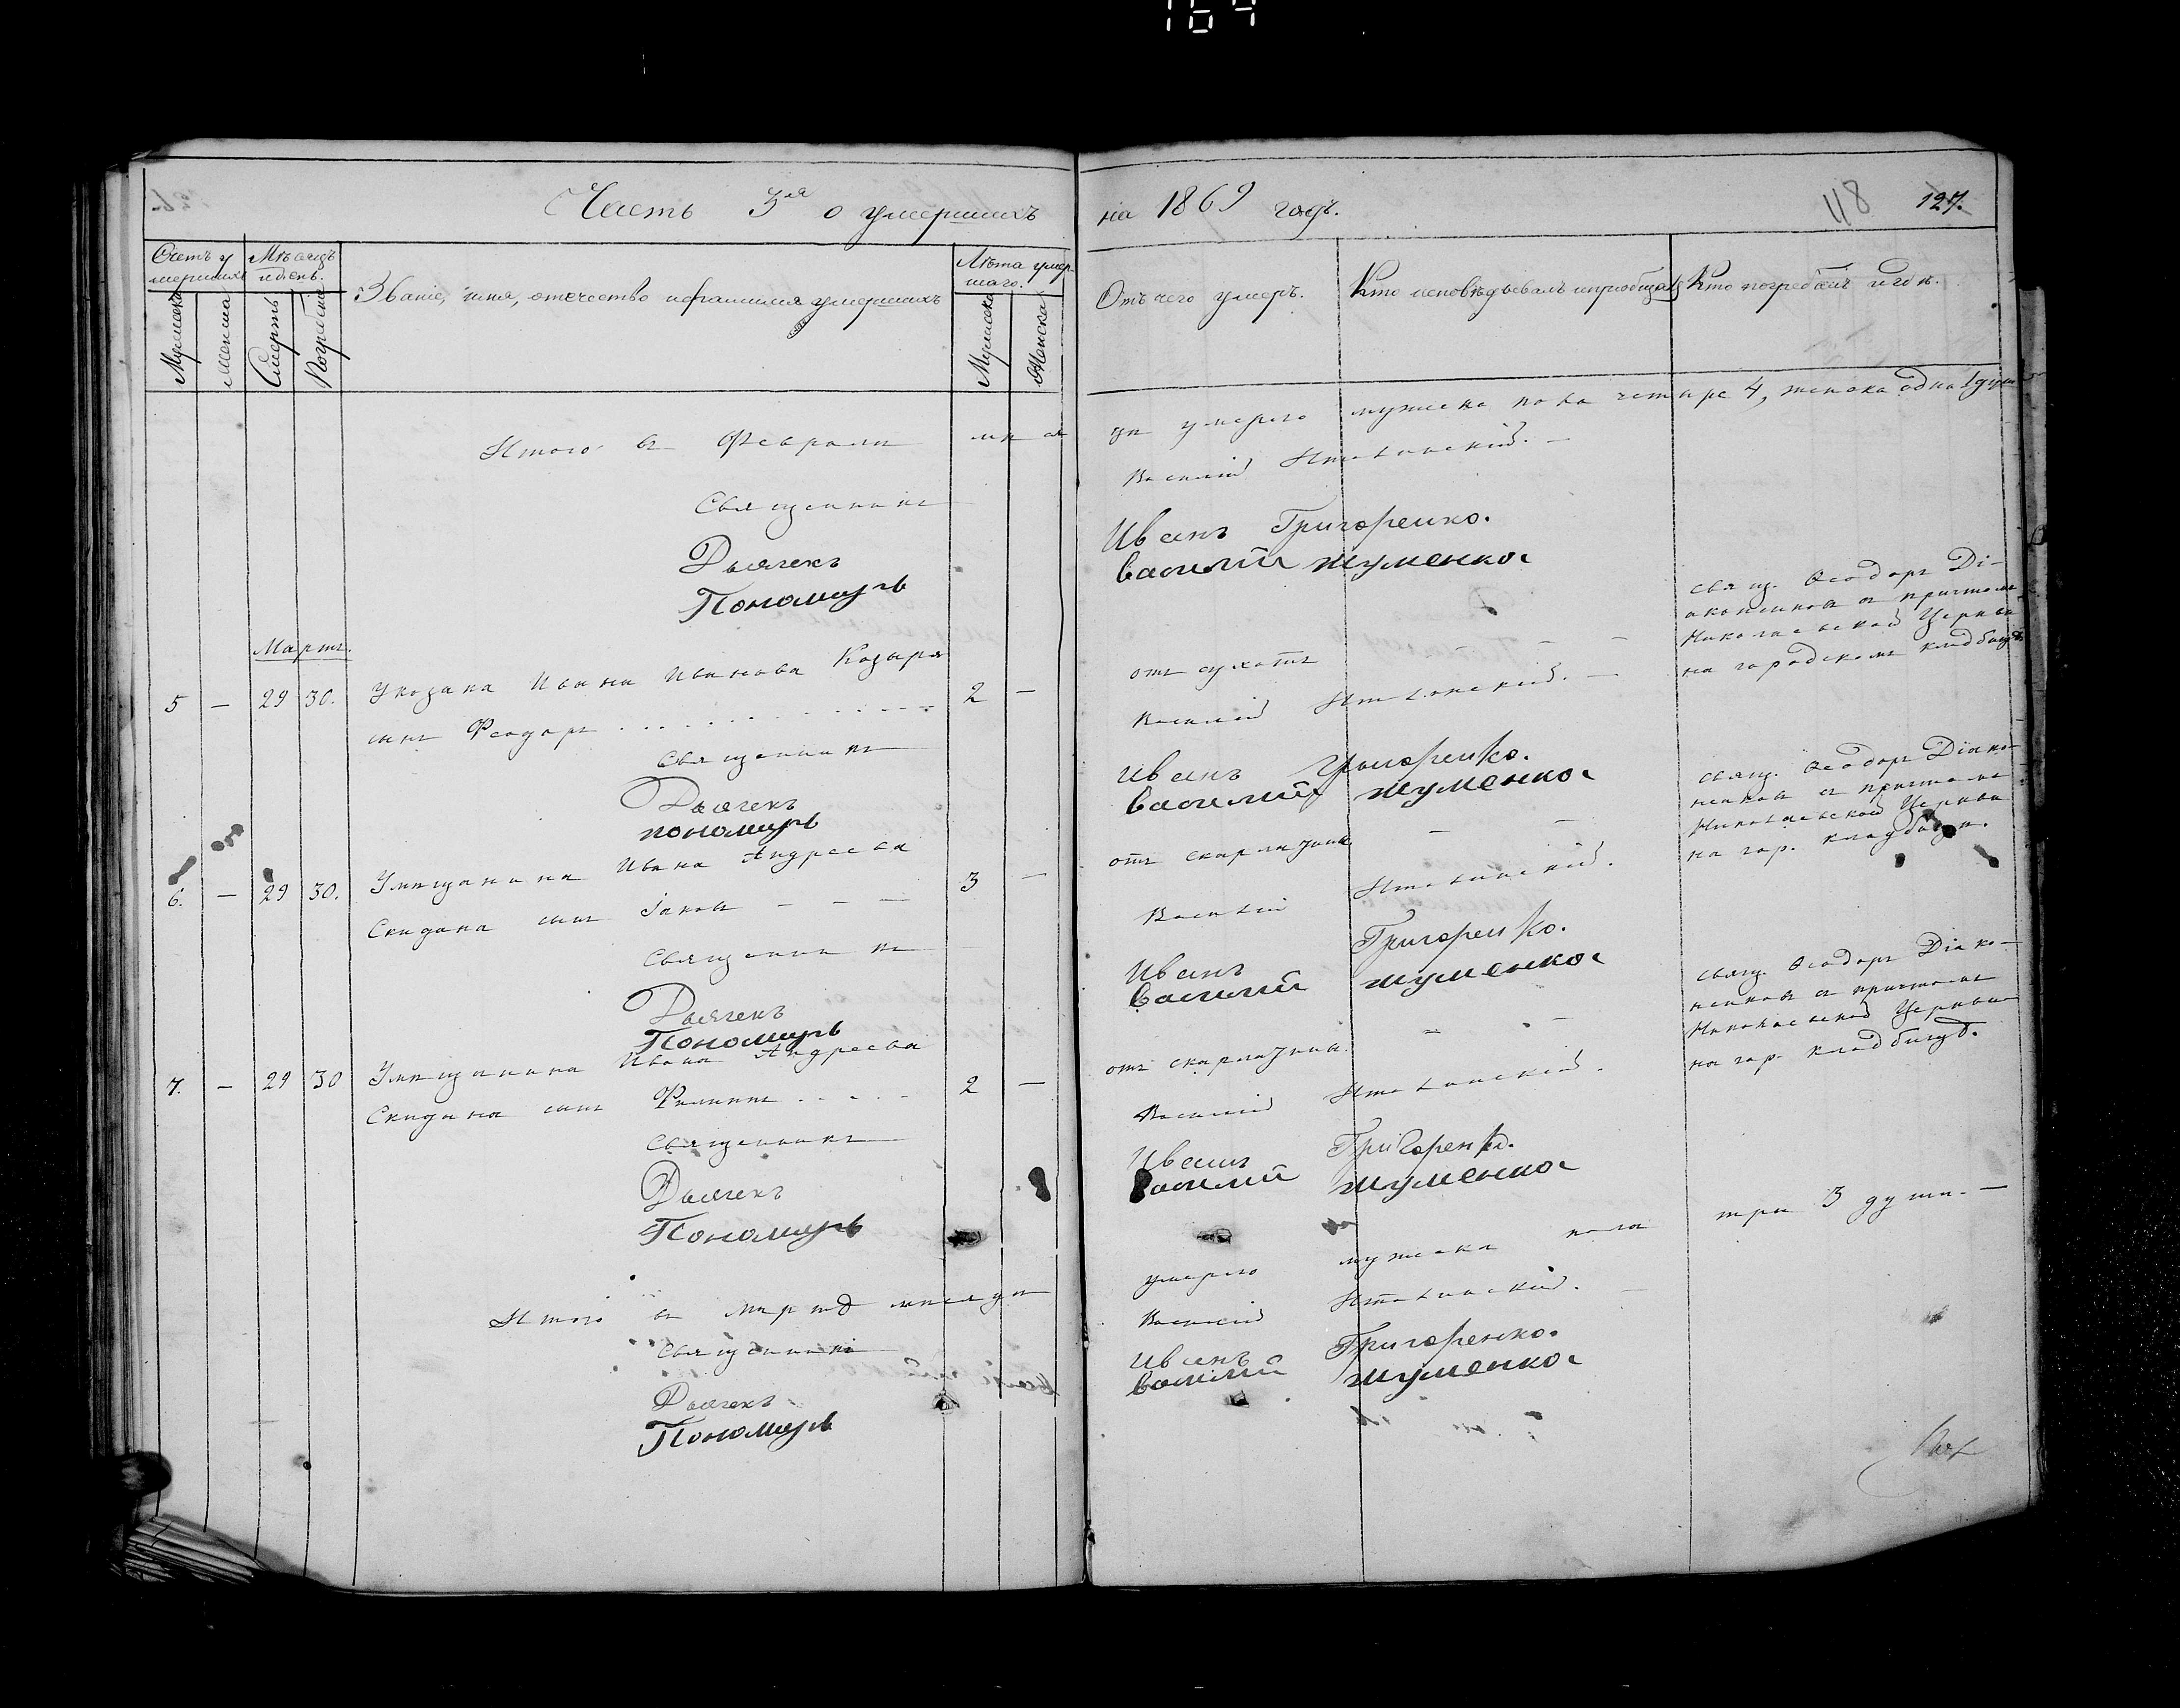 164
Часть 3ая о умершихъ на 1869 годъ.
118 127.
Счетъ умершихъ
Мѣсяцъ и день.
Званіе, имя, отечество и фамилія умершихъ
Лѣта умершаго.
Отъ чего умеръ.
Кто исповѣдывалъ и пріобщалъ
Кто погребалъ и гдѣ.
Мужеска
Женска
Смерть
Погребенія
Мужеска
Женска
Итого въ Февралѣ мѣсяцѣ умерло мужеска пола четыре 4, женска одна 1 душа
Священникъ Василій
Дьячекъ Иванъ Григоренко.
Пономарь Василій Шуменко
Мартъ.
5 — 29 30. У козака Ивана Иванова Козыря 2 — отъ сухотъ — —
сынъ Феодоръ
свящ. Ѳеодоръ Ді-
аконенковъ съ причтомъ
Николаевской Церкви
на городскомъ кладбищѣ
Священникъ Василій
Дьячекъ Иванъ Григоренко.
пономарь Василій Шуменко
6. — 29 30. У мѣщанина Ивана Андреева 3 — отъ скарлатины — —
Скидана сынъ Іаковъ — — —
свящ. Ѳеодоръ Діако-
ненковъ съ причтомъ
Николаевской Церкви
на гор. кладбищѣ.
Священникъ Василій
Дьячекъ Иванъ Григоренко.
Пономарь Василій Шуменко
7. — 29 30 У мѣщанина Ивана Андреева 2 — отъ скарлатины. — —
Скидана сынъ Филиппъ
свящ. Ѳеодоръ Діако-
ненковъ съ причтомъ
Николаевской Церкви
на гор. кладбищѣ.
Священникъ Василій
Дьячекъ Иванъ Григоренко.
Пономарь Василій Шуменко
Итого въ Мартѣ мѣсяцѣ умерло мужеска пола три 3 души. —
Священникъ Василій
Дьячекъ Иванъ Григоренко.
Пономарь Василій Шуменко